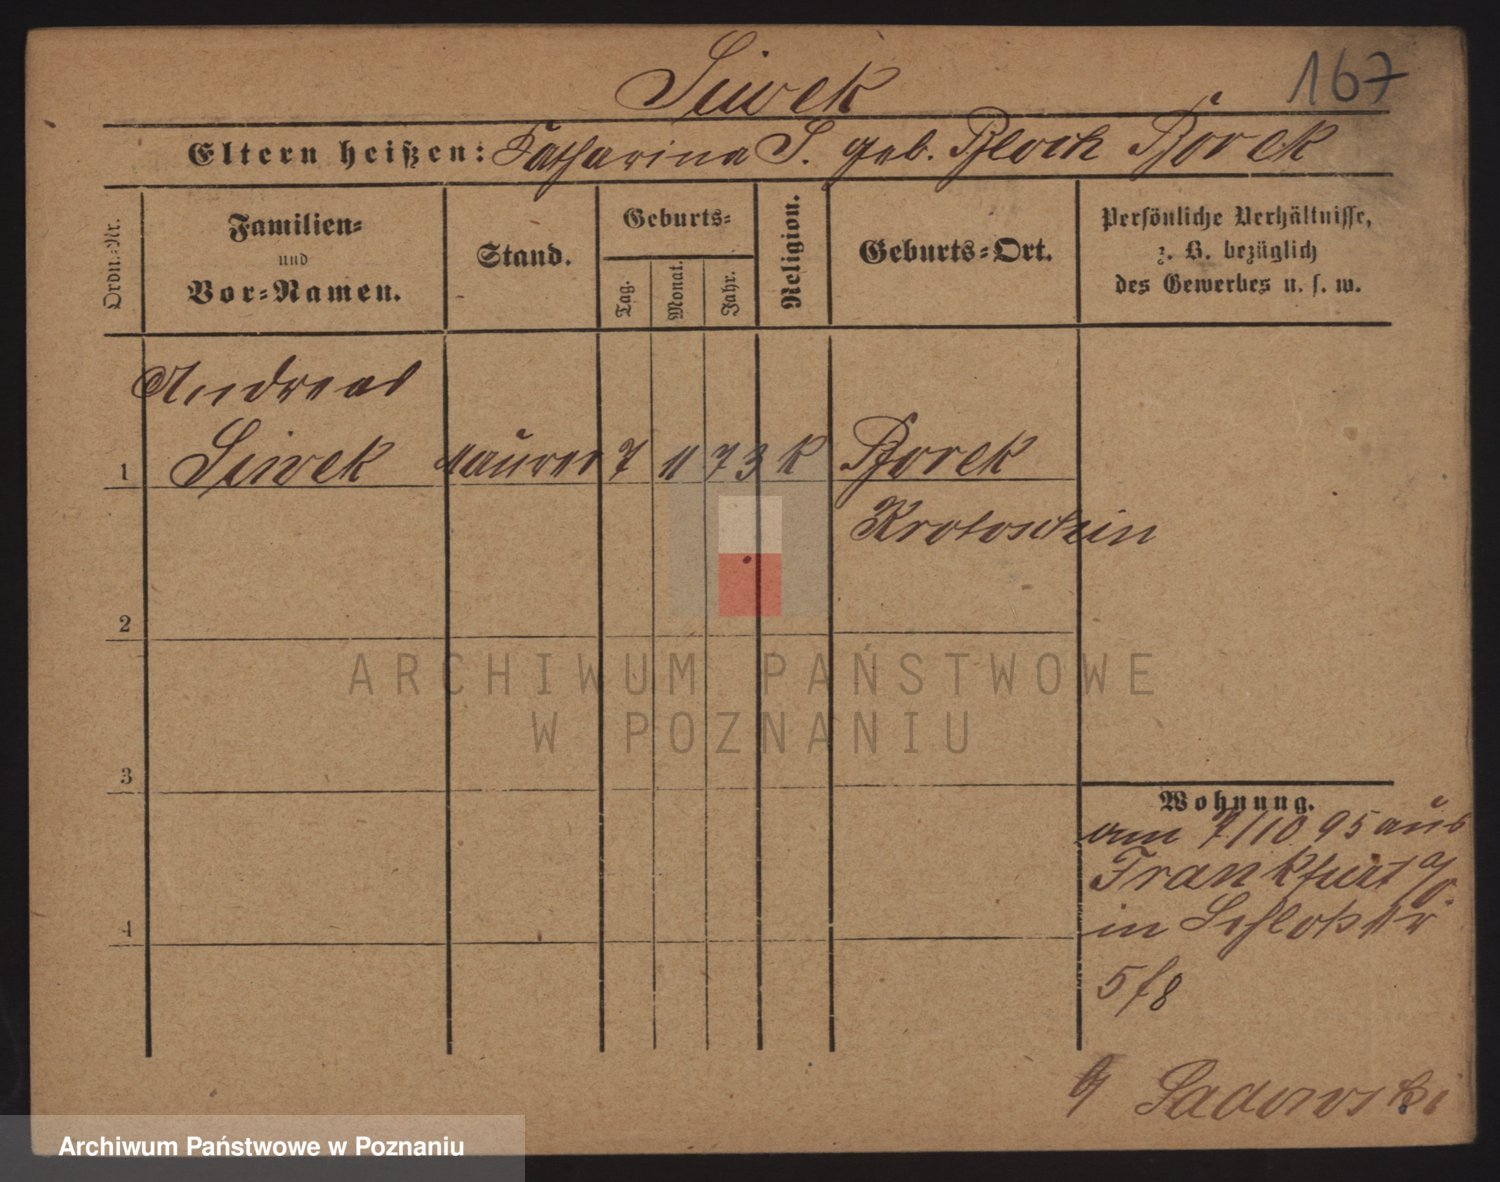 Siwek
167
Eltern heißen: Katharina S. geb. Bloch Borek
Ordn.-Nr.
Familien-
und
Vor-Namen.
Stand.
Geburts-
Tag.
Monat.
Jahr.
Religion.
Geburts-Ort.
Persönliche Verhältnisse,
z. B. bezüglich
des Gewerbes u. s. w.
Andreas
1 Siwek Maurer 7 11 73 K Borek
Krotoschin
2
3
4
Wohnung.
am 7/10 95 aus
Frankfurt a/O.
in Schloßstr
5/8
Sadowski
ARCHIWUM PAŃSTWOWE
W POZNANIU
Archiwum Państwowe w Poznaniu